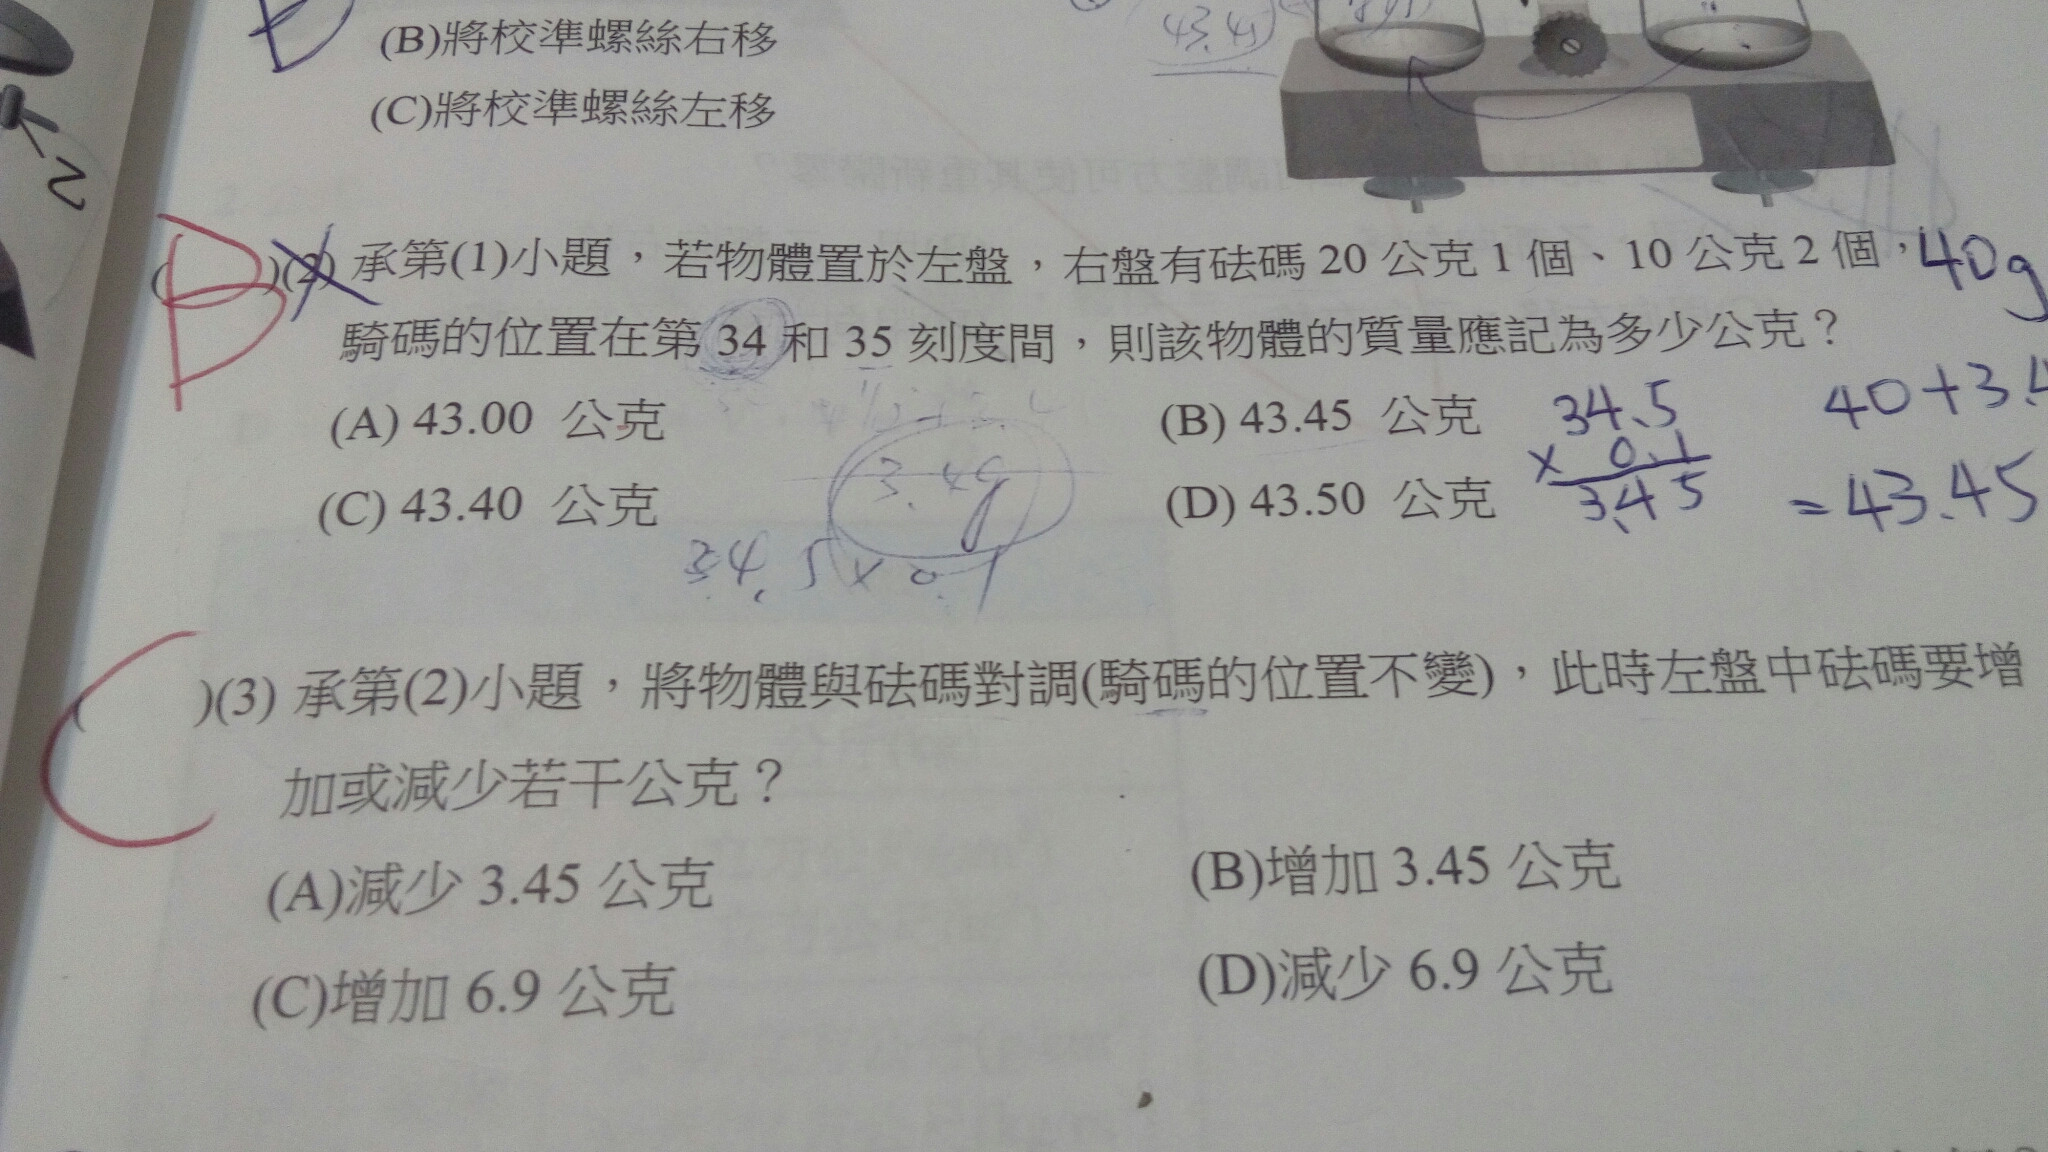 (B)將校準螺絲右移
43.45
(C)將校準螺絲左移
B
( )(2) 承第(1)小題，若物體置於左盤，右盤有砝碼 20 公克 1 個、10 公克 2 個，40g
騎碼的位置在第 34 和 35 刻度間，則該物體的質量應記為多少公克？
(A) 43.00 公克
(B) 43.45 公克
34.5
× 0.1
3.45
40+3.4
=43.45
(C) 43.40 公克
3.4g
(D) 43.50 公克
34.5×0.1
C
( )(3) 承第(2)小題，將物體與砝碼對調(騎碼的位置不變)，此時左盤中砝碼要增
加或減少若干公克？
(A)減少 3.45 公克
(B)增加 3.45 公克
(C)增加 6.9 公克
(D)減少 6.9 公克